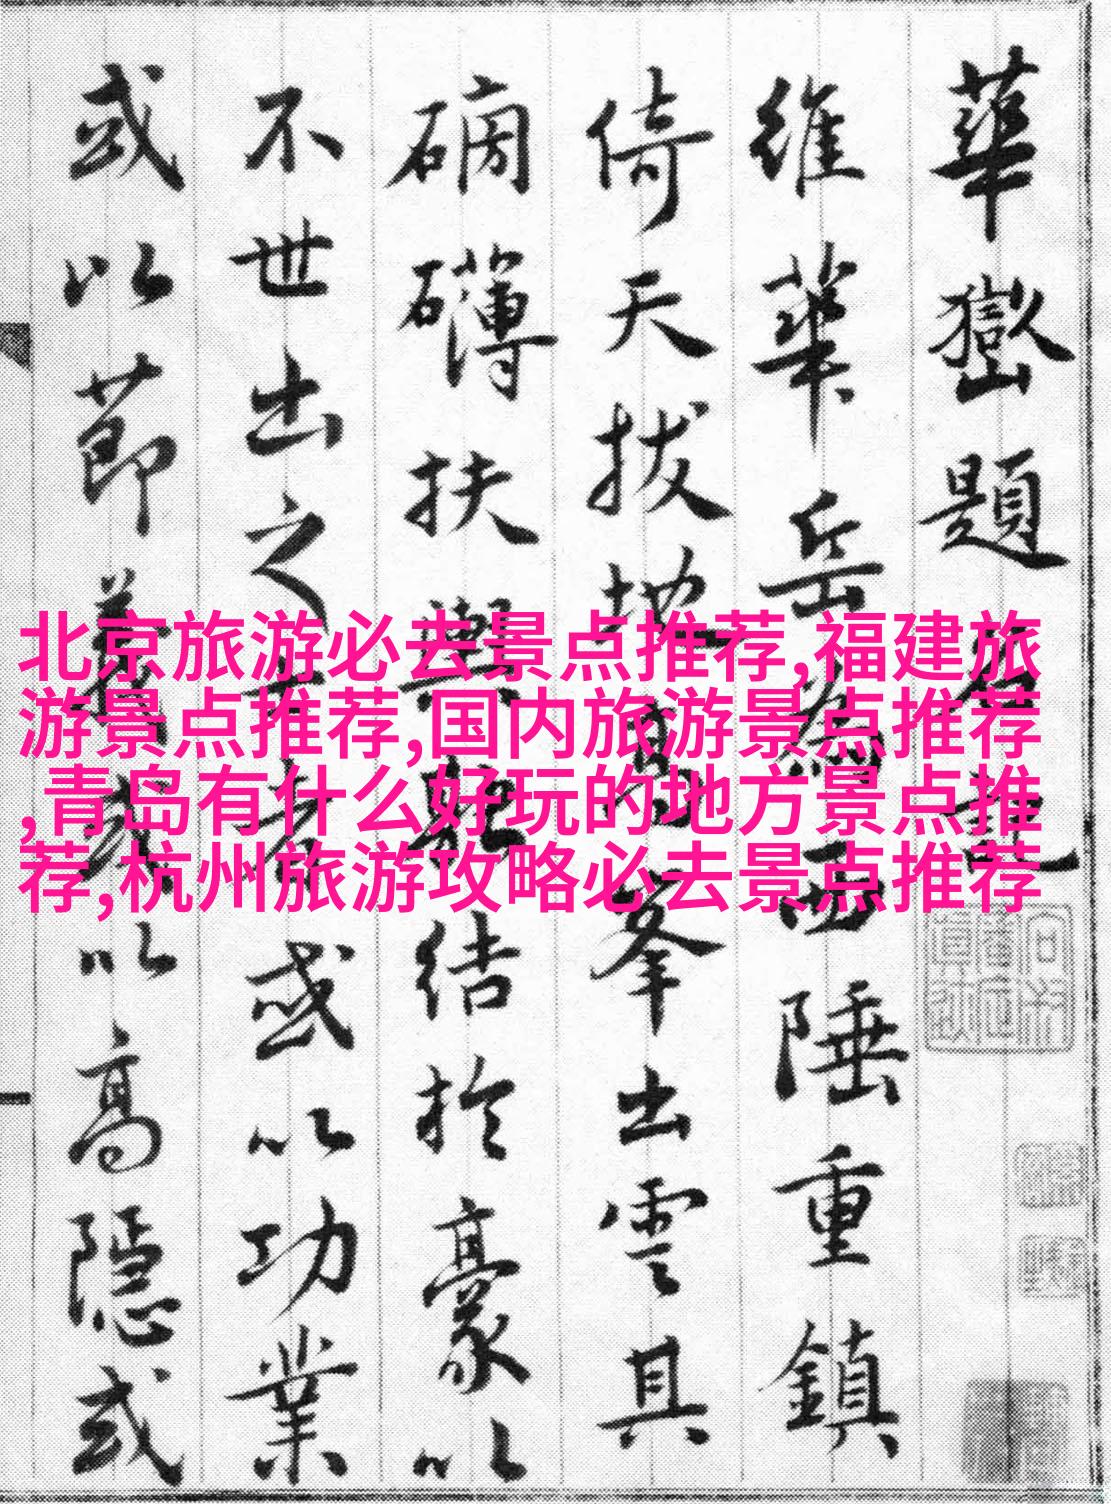 華嶽題
維華岳為西陲重鎮
倚天拔地高峯出雲其
磅礴扶輿結於豪以
不世出之者或以功業
或以節義或以高隱或
北京旅游必去景点推荐,福建旅
游景点推荐,国内旅游景点推荐
,青岛有什么好玩的地方景点推
荐,杭州旅游攻略必去景点推荐